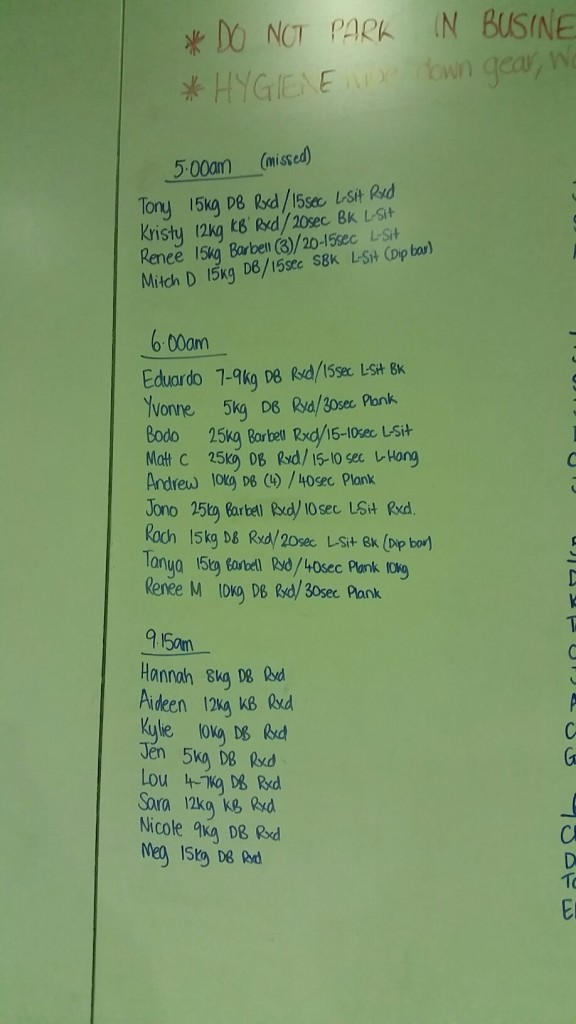 * DO NOT PARK IN BUSINE
* HYGIENE down gear,
5:00am (missed)
Tony 15kg DB Rxd/15sec L-Sit Rxd
Kristy 12kg KB Rxd/20sec BK L-Sit
Renee 15kg Barbell (3)/20-15sec L-Sit
Mitch D 15kg DB/15sec SBK L-Sit (Dip bar)
6:00am
Eduardo 7-9kg DB Rxd/15sec L-Sit BK
Yvonne 5kg DB Rxd/30sec Plank
Bodo 25kg Barbell Rxd/15-10sec L-Sit
Matt C 25kg DB Rxd/15-10 sec L-Hang
Andrew 10kg DB (4) /40sec Plank
Jono 25kg Barbell Rxd/10sec LSit Rxd.
Rach 15kg DB Rxd/20sec L-Sit BK (Dip bar)
Tanya 15kg Barbell Rxd/40sec Plank 10kg
Renee M 10kg DB Rxd/30sec Plank
9.15am
Hannah 8kg DB Rxd
Aideen 12kg KB Rxd
Kylie 10kg DB Rxd
Jen 5kg DB Rxd
Lou 4-7kg DB Rxd
Sara 12kg KB Rxd
Nicole 9kg DB Rxd
Meg 15kg DB Rxd